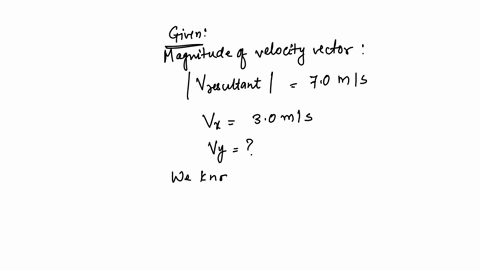 Given:
Magnitude of velocity vector :
|Vresultant| = 7.0 m/s
Vx = 3.0 m/s
Vy = ?
We kno